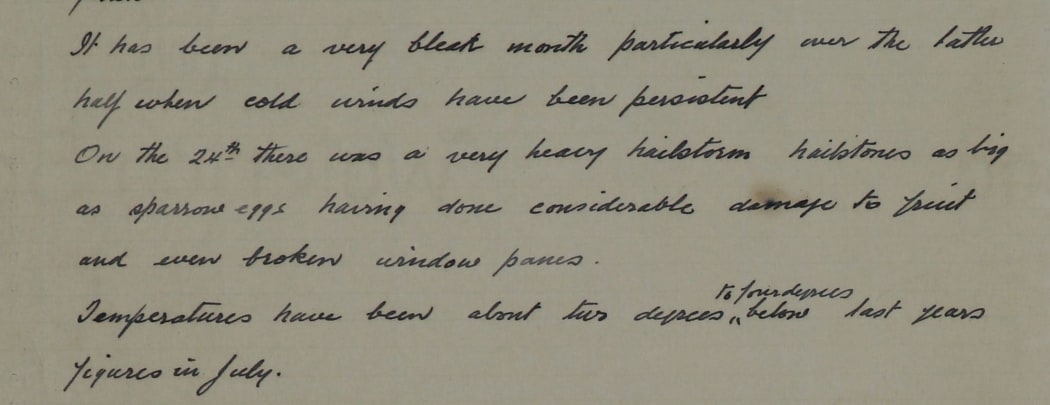 It has been a very bleak month particularly over the latter
half when cold winds have been persistent
On the 24th there was a very heavy hailstorm hailstones as big
as sparrow eggs having done considerable damage to fruit
and even broken window panes.
to four degrees
Temperatures have been about two degrees below last years
figures in July.